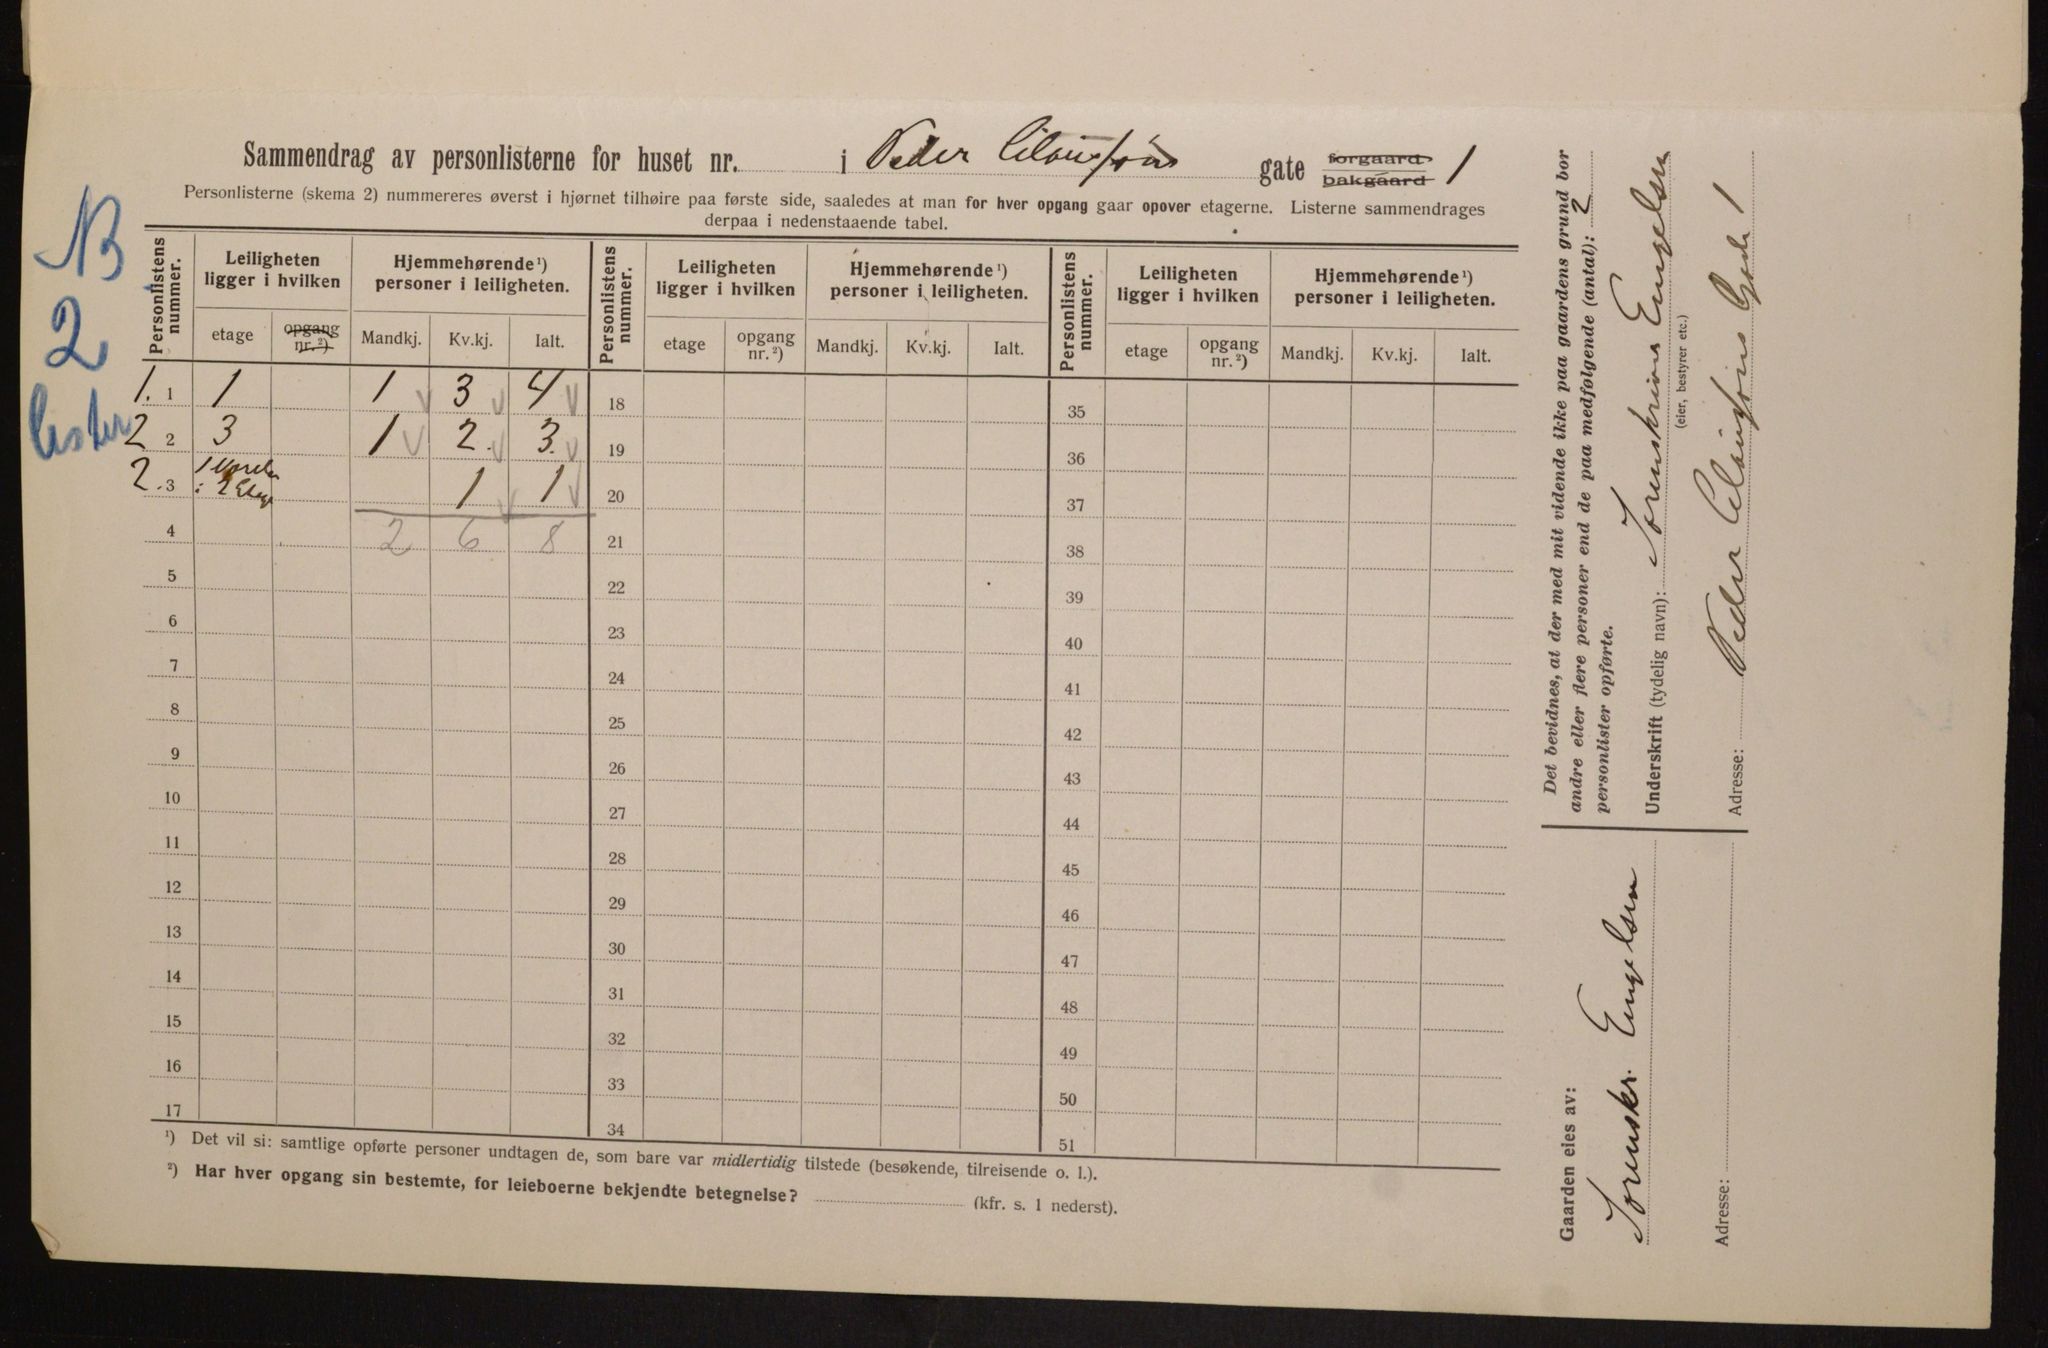 Sammendrag av personlisterne for huset nr. i Peder Clausføns gate forgaard bakgaard 1
Personlisterne (skema 2) nummereres øverst i hjørnet tilhøire paa første side, saaledes at man for hver opgang gaar opover etagerne. Listerne sammendrages
derpaa i nedenstaaende tabel.
NB
2
lister
Personlistens nummer. Leiligheten ligger i hvilken Hjemmehørende ¹) personer i leiligheten. Personlistens nummer. Leiligheten ligger i hvilken Hjemmehørende ¹) personer i leiligheten. Personlistens nummer. Leiligheten ligger i hvilken Hjemmehørende ¹) personer i leiligheten.
etage opgang nr. ²) Mandkj. Kv.kj. Ialt. etage opgang nr. ²) Mandkj. Kv.kj. Ialt. etage opgang nr. ²) Mandkj. Kv.kj. Ialt.
1. 1 1 1 3 4 18 35
2 2 3 1 2. 3. 19 36
2. 3 1 i 2 Etage 1 1 20 37
4 2 6 8 21 38
5 22 39
6 23 40
7 24 41
8 25 42
9 26 43
10 27 44
11 28 45
12 29 46
13 30 47
14 31 48
15 32 49
16 33 50
17 34 51
¹) Det vil si: samtlige opførte personer undtagen de, som bare var midlertidig tilstede (besøkende, tilreisende o. l.).
²) Har hver opgang sin bestemte, for leieboerne bekjendte betegnelse? (kfr. s. 1 nederst).
Det bevidnes, at der med mit vidende ikke paa gaardens grund bor
andre eller flere personer end de paa medfølgende (antal): 2
personlister opførte.
Underskrift (tydelig navn): Sorenskriver Engelsen
(eier, bestyrer etc.)
Adresse: Peder Clausføns Gade 1
Gaarden eies av:
Sorenskr. Engelsen
Adresse: